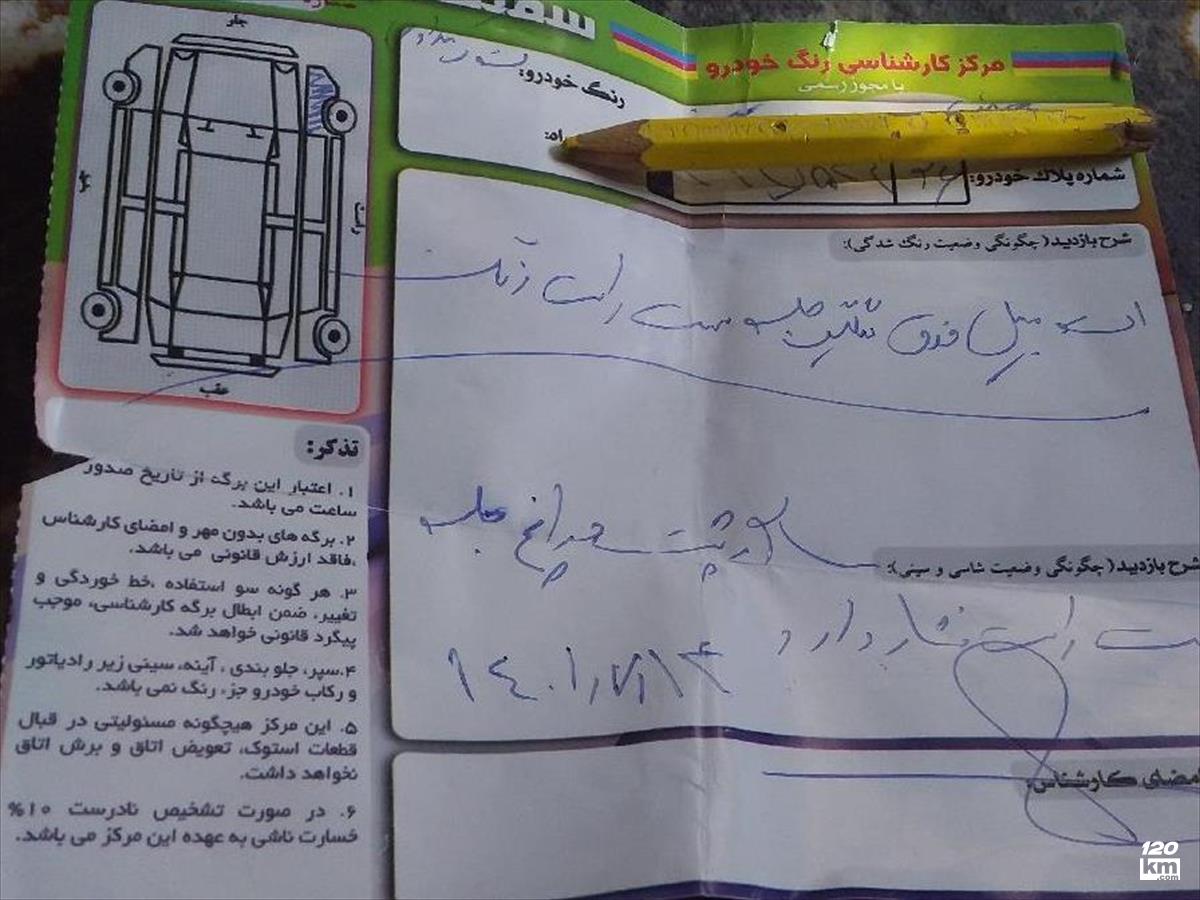 مرکز کارشناسی رنگ خودرو
با مجوز رسمی
رنگ خودرو:
شماره پلاک خودرو:
جلو
عقب
شرح بازدید (چگونگی وضعیت رنگ شدگی):
فوق گلگیر جلو سمت راست رنگ
شرح بازدید (چگونگی وضعیت شاسی و سینی):
پشت چراغ جلو
راست فشار دارد
۱۴۰۱/۷/۱۴
امضای کارشناس:
تذکر:
۱. اعتبار این برگه از تاریخ صدور
ساعت می باشد.
۲. برگه های بدون مهر و امضای کارشناس
،فاقد ارزش قانونی می باشد.
۳. هر گونه سو استفاده ،خط خوردگی و
تغییر، ضمن ابطال برگه کارشناسی، موجب
پیگرد قانونی خواهد شد.
۴.سپر، جلو بندی ، آینه، سینی زیر رادیاتور
و رکاب خودرو جز، رنگ نمی باشد.
۵. این مرکز هیچگونه مسئولیتی در قبال
قطعات استوک، تعویض اتاق و برش اتاق
نخواهد داشت.
۶. در صورت تشخیص نادرست ۱۰%
خسارت ناشی به عهده این مرکز می باشد.
120
km
.com